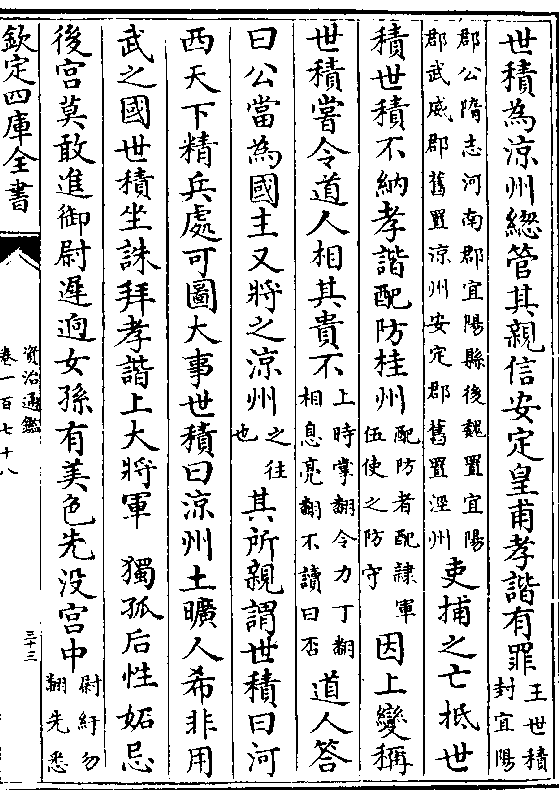 世積為涼州緫管其親信安定皇甫孝諧有罪王世積封宜陽
郡公隋志河南郡宜陽縣後魏置宜陽郡武威郡舊置涼州安定郡舊置涇州吏捕之亡抵世
積世積不納孝諧配防桂州配防者配隷軍伍使之防守因上變稱
世積嘗令道人相其貴不上時掌翻令力丁翻相息亮翻不讀曰否道人答
曰公當為國主又將之涼州之往也其所親謂世積曰河
西天下精兵處可圖大事世積曰涼州土曠人希非用
武之國世積坐誅拜孝諧上大將軍 獨孤后性妬忌
後宫莫敢進御尉遲迥女孫有美色先没宫中尉紆勿翻先悉
欽定四庫全書
資治通鑑
卷一百七十八
三十三